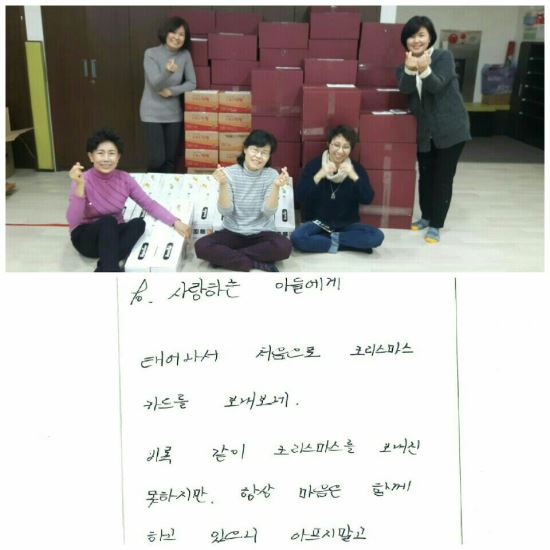 to. 사랑하는 아들에게
태어나서 처음으로 크리스마스
카드를 보내보네.
비록 같이 크리스마스를 보내진
못하지만. 항상 마음은 함께
하고 있으니 아프지말고